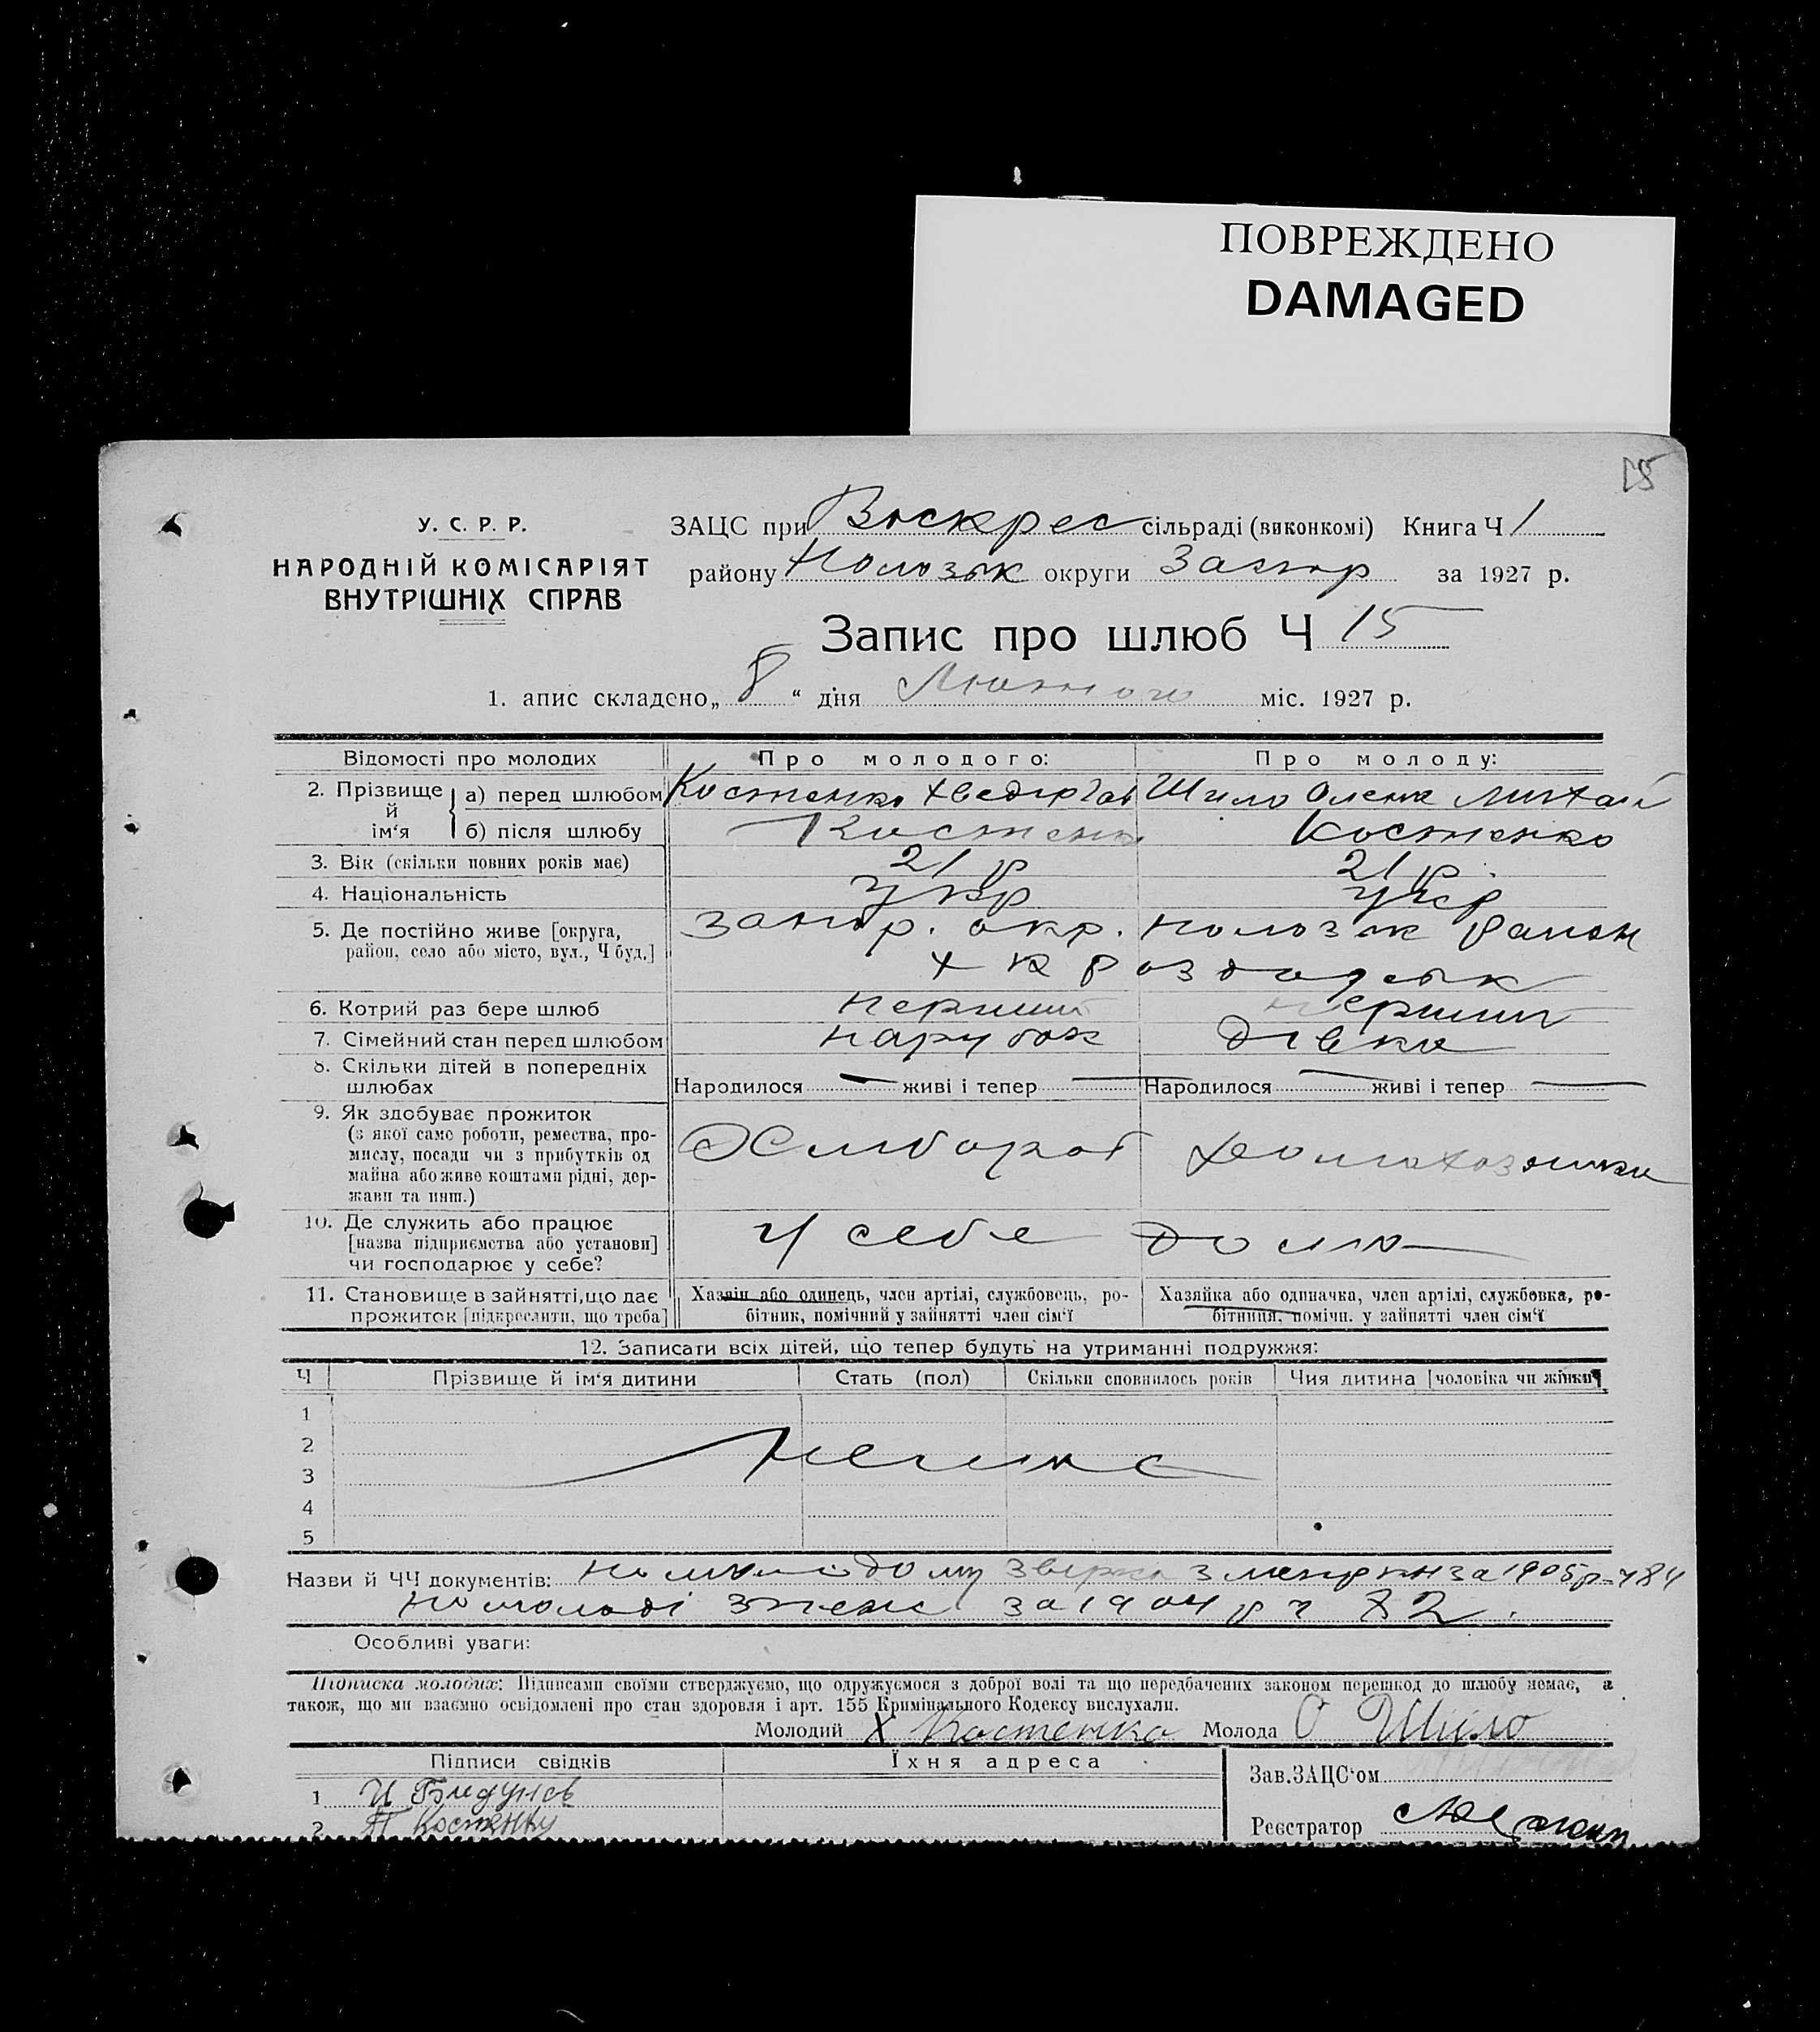 ПОВРЕЖДЕНО
DAMAGED
15
У. С. Р. Р.
НАРОДНІЙ КОМІСАРІЯТ
ВНУТРІШНІХ СПРАВ
ЗАЦС при Воскрес сільраді (виконкомі) Книга Ч 1
району Полозьк округи Запор за 1927 р.
Запис про шлюб Ч 15
1. апис складено „ 8 “ дня Лютого міс. 1927 р.
Відомості про молодих Про молодого: Про молоду:
2. Прізвище й ім‘я а) перед шлюбом Костенко Хведір Шило Олена Михай
б) після шлюбу Костенко Костенко
3. Вік (скільки повних років має) 21 р 21 р.
4. Національність Укр Укр
5. Де постійно живе [округа, район, село або місто, вул., Ч буд.] Запор. окр. Полозьк район
х
6. Котрий раз бере шлюб перший перший
7. Сімейний стан перед шлюбом парубок дівка
8. Скільки дітей в попередніх шлюбах Народилося — живі і тепер — Народилося — живі і тепер —
9. Як здобуває прожиток
(з якої само роботи, ремества, промислу, посади чи з прибутків од майна або живе коштами рідні, держави та инш.) Хлибороб домохозяйка
10. Де служить або працює
[назва підприємства або установи]
чи господарює у себе? У себе дома
11. Становище в зайнятті, що дає прожиток [підкреслити, що треба] Хазяїн або одинець, член артілі, службовець, робітник, помічний у зайнятті член сім‘ї Хазяйка або одиначка, член артілі, службовка, робітниця, помічн. у зайнятті член сім‘ї
12. Записати всіх дітей, що тепер будуть на утриманні подружжя:
Ч Прізвище й ім‘я дитини Стать (пол) Скільки сповнилось років Чия дитина [чоловіка чи жінки]
1
2
3 Немає
4
5
Назви й ЧЧ документів: по молодому з метрик за 1905 р. ч 84
по молоді з за 1904 р ч 82.
Особливі уваги:
Підписка молодих: Підписами своїми стверджуємо, що одружуємося з доброї волі та що передбачених законом перешкод до шлюбу немає, а
також, що ми взаємно освідомлені про стан здоровля і арт. 155 Кримінального Кодексу вислухали.
Молодий Х Костенко Молода О Шило
Підписи свідків Їхня адреса Зав.ЗАЦС‘ом
1 И
2 Костенко Реєстратор